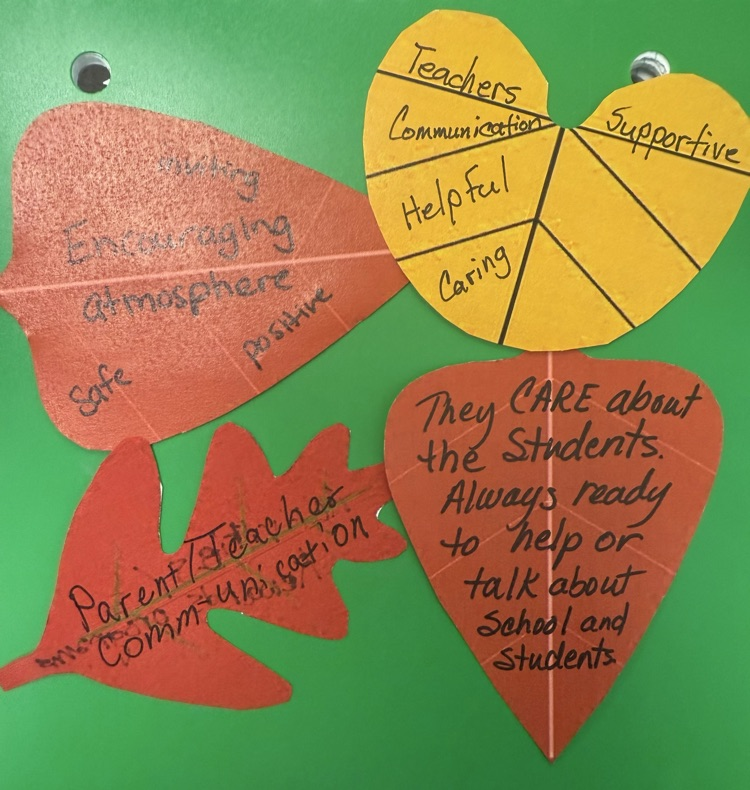 Inviting
Encouraging
atmosphere
positive
Safe
Teachers
Communication
Helpful
Caring
Supportive
Parent/Teacher
Comm-unication
They CARE about
the Students.
Always ready
to help or
talk about
School and
Students